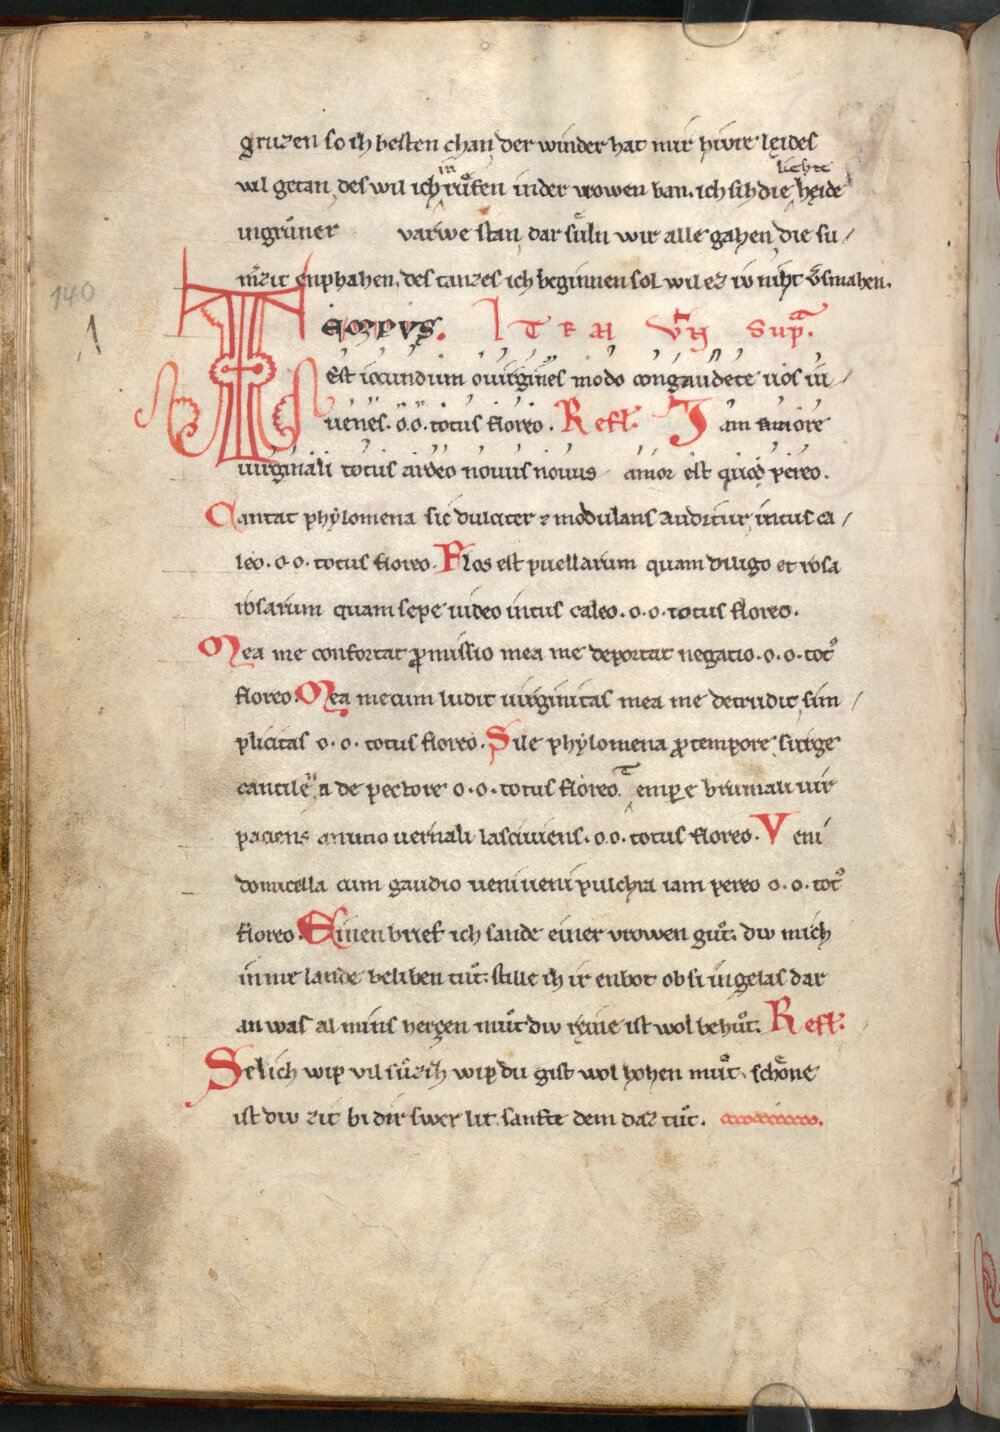 gruzen so ih besten chan der winder hat mir hivre leides
vil getan des wil ich in růfen in der vrowen ban. ich sih die liehte heide
in grůner varwe stan dar sůln wir alle gahen die su/
m̄zit enphahen. des tanzes ich beginnen sol wil ez iv niht v̄smahen.
140
1
Tempus. ITEM VÑ Supᵃ.
est iocundum o uirgines modo congaudete uos iu/
uenes. o.o. totus floreo. Refl. Iam amore
uirginali totus ardeo nouus nouus amor est quo pereo.
Cantat phylomena sic dulciter ⁊ modulans auditur intus ca/
leo. o.o. totus floreo. Flos est puellarum quam diligo et rosa
rosarum quam sepe uideo intus caleo. o.o. totus floreo.
Mea me confortat p̄missio mea me deportat negatio. o.o. totꝰ
floreo. Mea mecum ludit uirginitas mea me detrudit sim/
plicitas o.o. totus floreo. Sile phylomena p̄ tempore surge
cantilena de pectore o.o. totus floreo. Tempore brumali uir
paciens animo uernali lasciuiens. o.o. totus floreo. Veni
domicella cum gaudio ueni ueni pulchra iam pereo o.o. totꝰ
floreo. Einen brief ich sande einer vrowen gůt. div mich
inme lande beliben tůt. stille ih ir enbot ob si in gelas dar
an was al mins hergen můt div reine ist wol behůt. Refl.
Selich wip vil sůzih wip du gist wol hohen můt. schône
ist div zit bi dir swer lit. sanfte dem daz tůt.